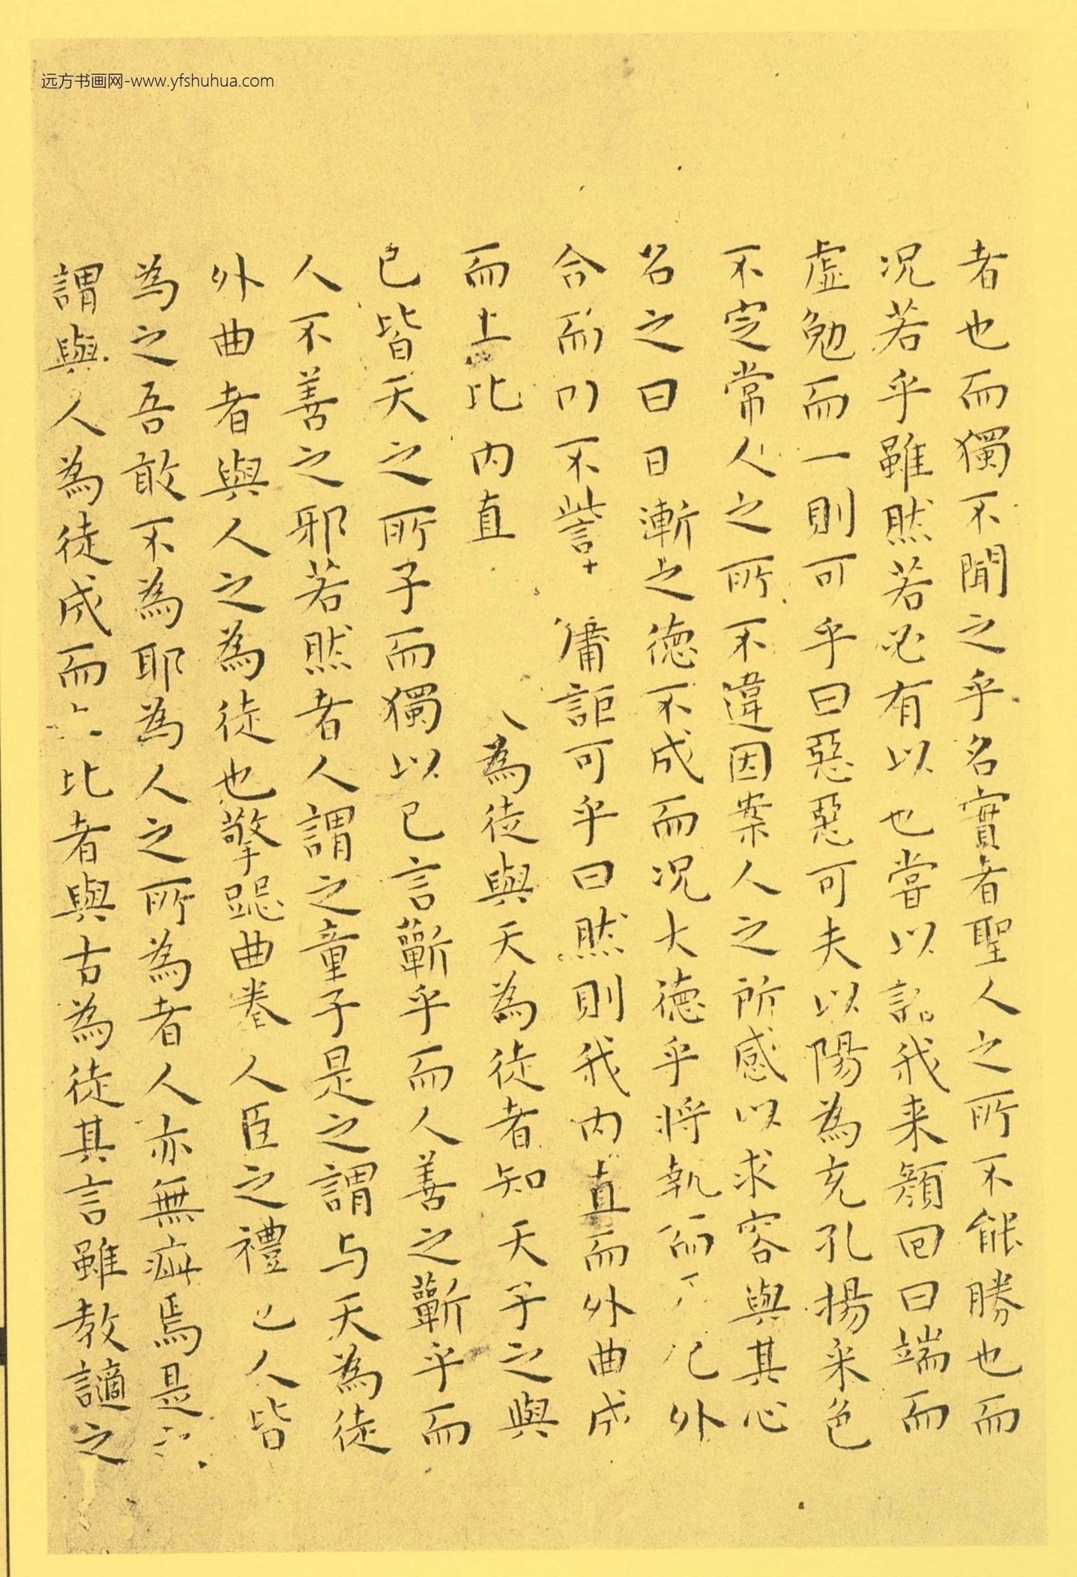 远方书画网-www.yfshuhua.com
者也而獨不聞之乎名實者聖人之所不能勝也而
况若乎雖然若必有以也嘗以語我来顔回曰端而
虚勉而一則可乎曰惡惡可夫以陽為充孔揚采色
不定常人之所不違因案人之所感以求容與其心
名之曰日漸之德不成而况大德乎將執而不化外
合而内不訾其庸詎可乎曰然則我内直而外曲成
而上比内直為徒與天為徒者知天子之與
己皆天之所子而獨以己言蘄乎而人善之蘄乎而
人不善之邪若然者人謂之童子是之謂与天為徒
外曲者與人之為徒也擎跽曲拳人臣之禮也人皆
為之吾敢不為耶為人之所為者人亦無疵焉是
謂與人為徒成而上比者與古為徒其言雖教讁之